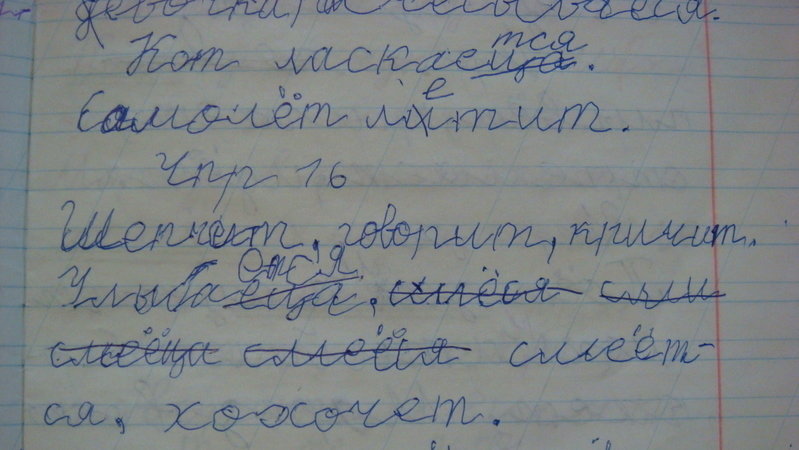 девочка
Кот ласкаетсяща.
Самолёт летит.
Упр 16
Шепчет, говорит, кричит.
Улыбается еща, смёёся
смеёща смеёйся смеёт-
ся, хохочет.